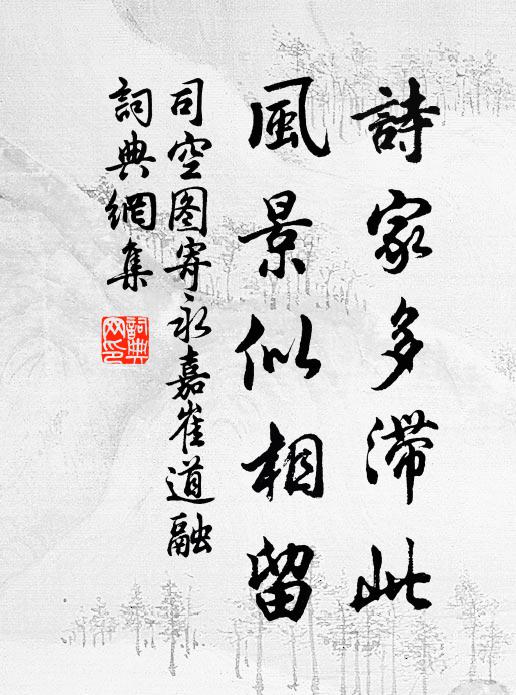 詩家多滯此
風景似相留
司空图寄永嘉崔道融
詞典網集
詞典
网印